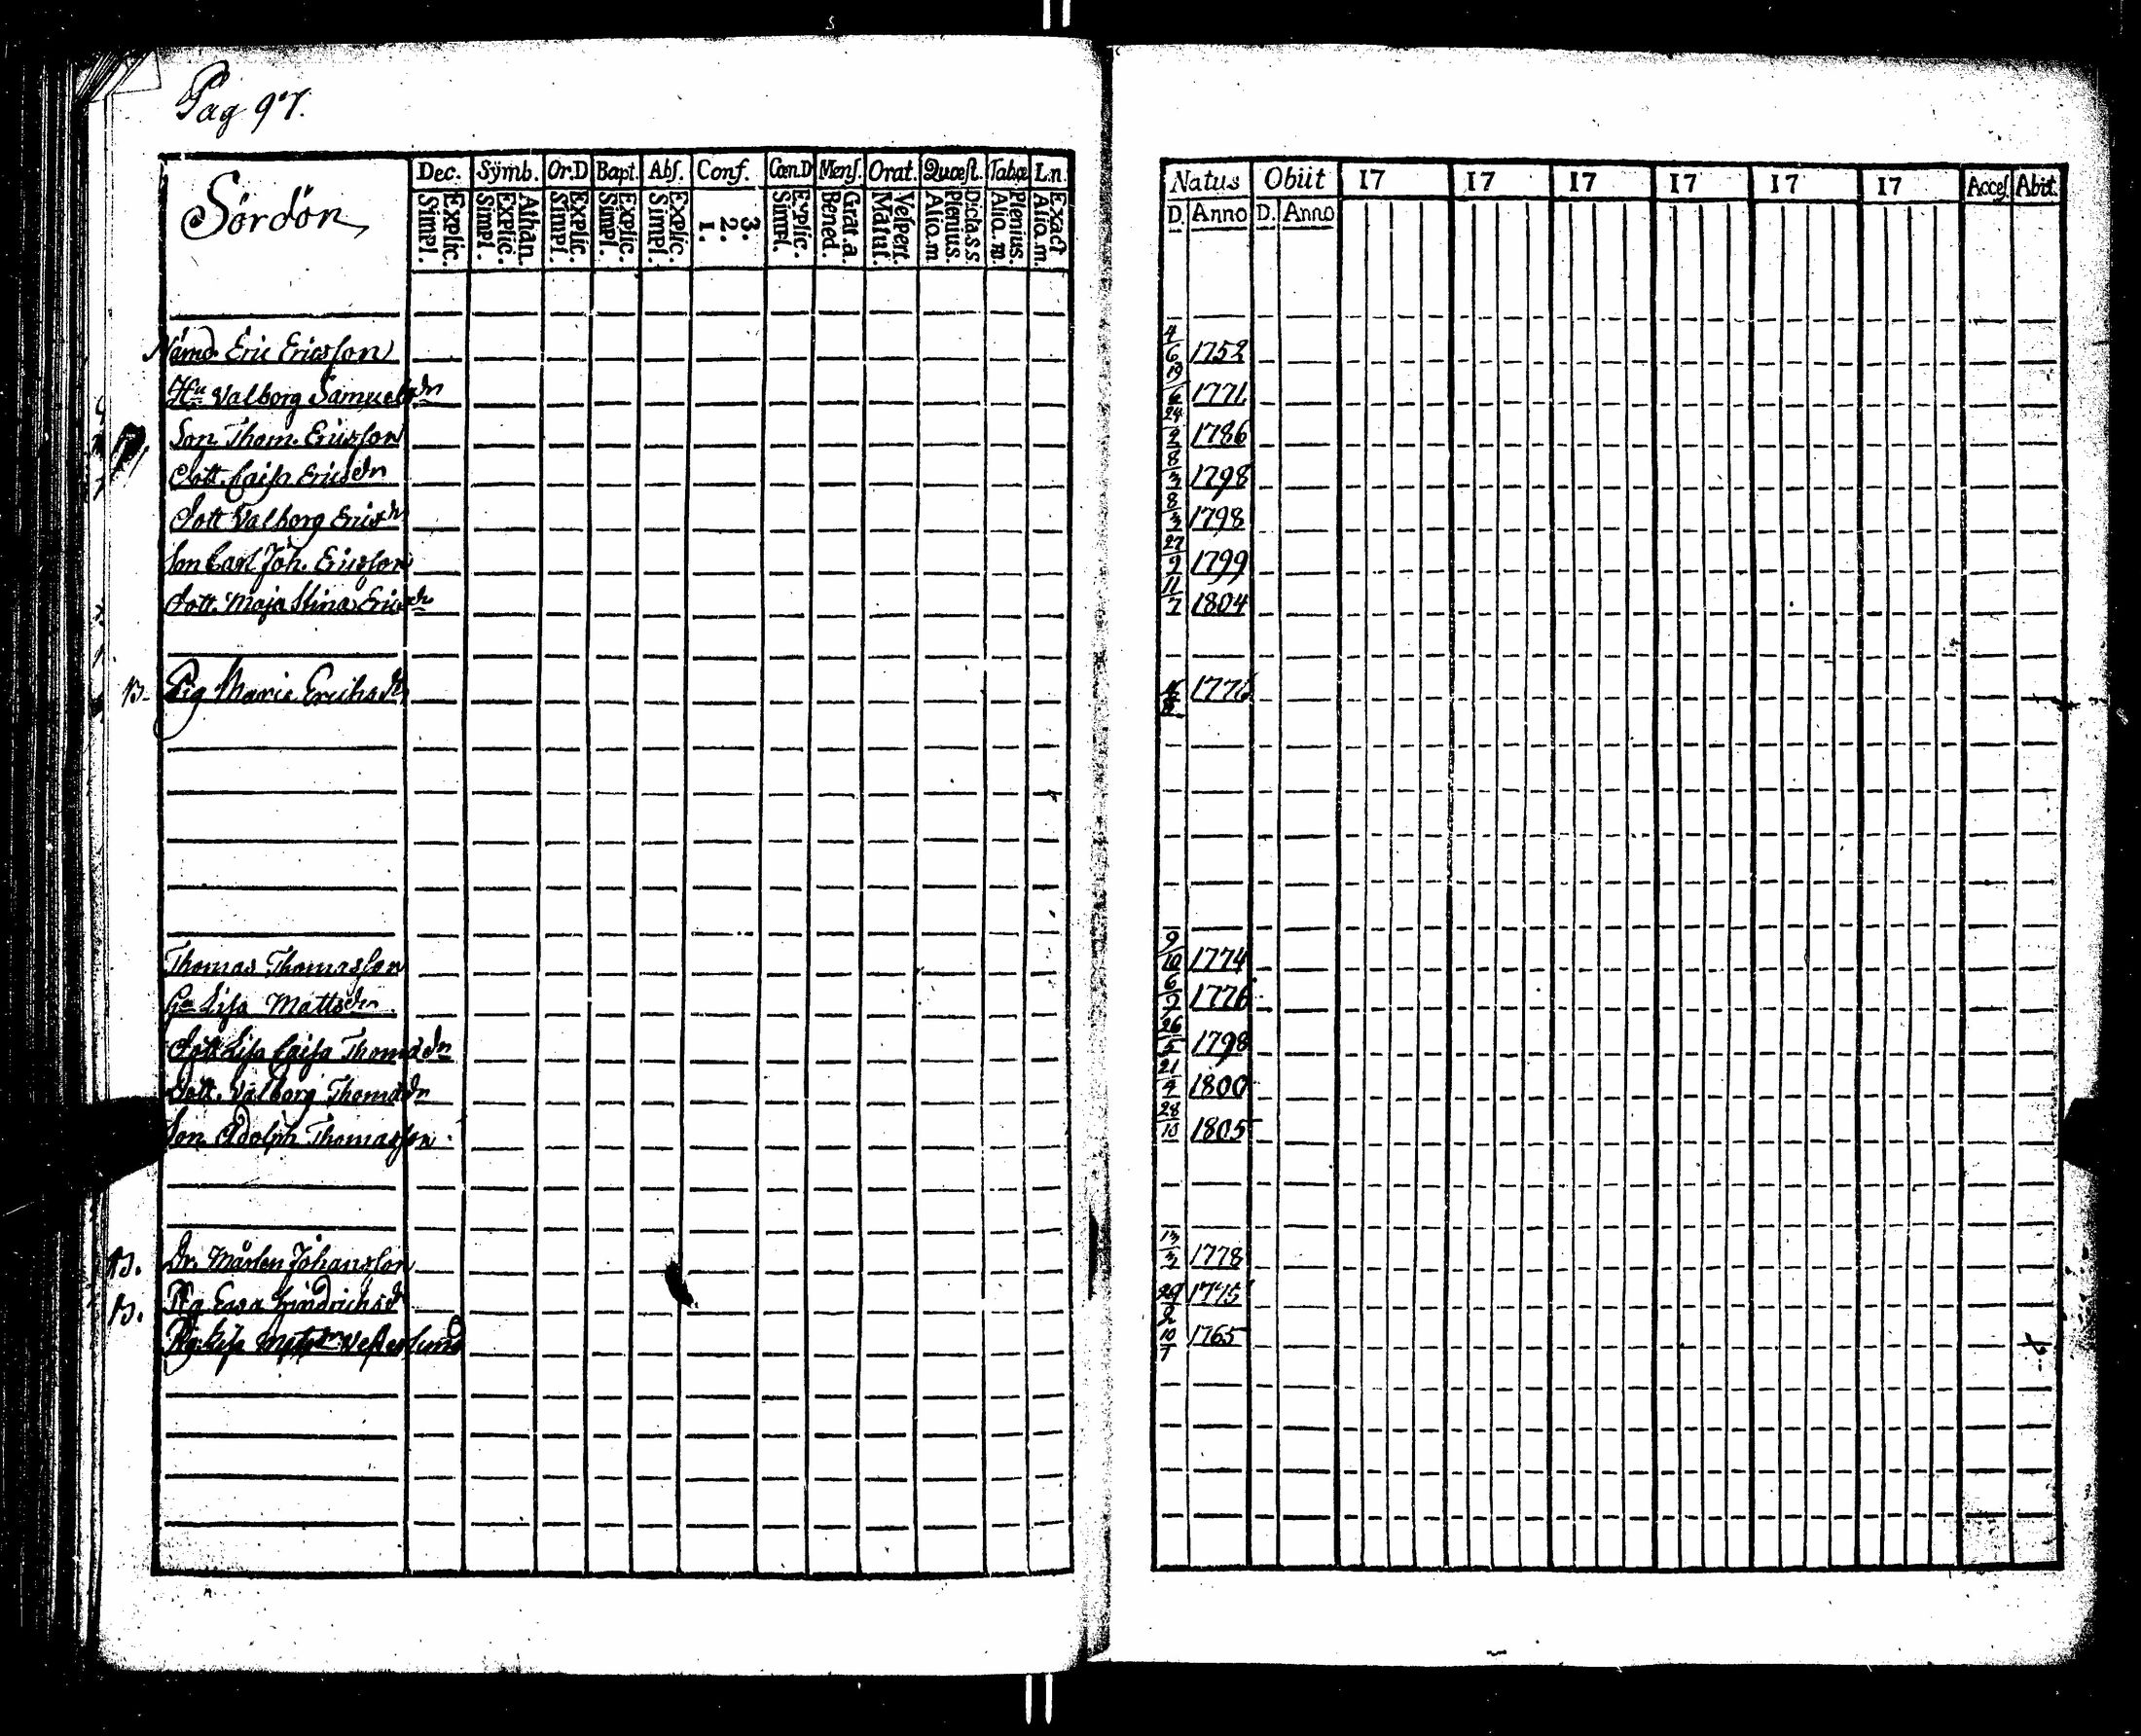 Pag 97.
Sördön
Dec. Symb. Or.D Bapt. Abſ. Conf. Cœn.D Menſ. Orat. Quœſt. Tabœ L.n.
Explic. Simpl. Athan. Explic. Simpl. Explic. Simpl. Explic. Simpl. Explic. Simpl. 3. 2. 1. Explic. Simpl. Grat.a. Bened. Veſpert. Matut. Dicta.s.s. Plenius. Aliq.m Plenius. Aliq.m. Exact Aliq.m.
Natus Obiit 17 17 17 17 17 17 Acceſ. Abit.
D. Anno D. Anno
Nämd. Eric Ericsson 4/6 1752
Hu Valborg Samuelsdr 19/6 1771
Son Thom. Ericsson 24/2 1786
Dott. Caisa Ericsdr 8/3 1798
Dott Valborg Ericsdr 8/3 1798
Son Carl Joh. Ericsson 27/9 1799
Dott. Maja Stina Ericsdr 11/7 1804
B. Pig Maria Erichsdr
Thomas Thomasson 9/10 1774
Hu Lisa Mattsdr 6/7 1776
Dott Lisa Caisa Thomadr 26/5 1798
Dott. Valborg Thomadr 21/4 1800
Son Adolph Thomasson 28/10 1805
B. Dr. Mårten Johansson 13/3 1778
B. Pig Eva Hindrichsdr 29/2 1775
Pig. Lisa Matsdr Vesterlund 10/1 1765